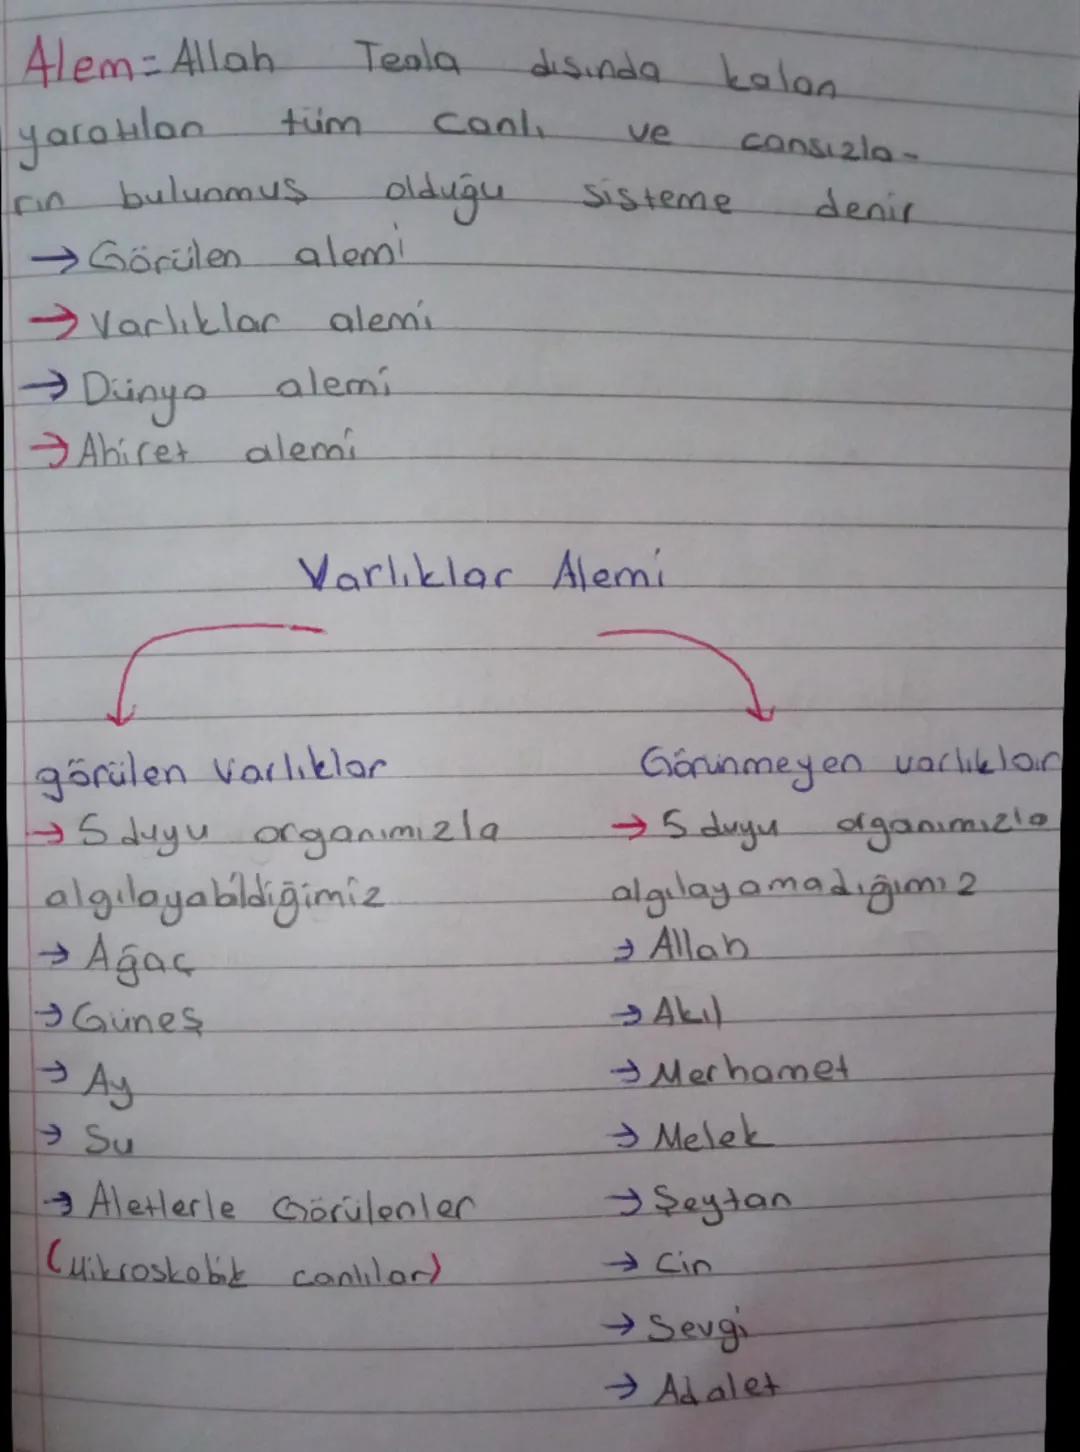 Alem = Allah Teala dışında kalan
yaratılan tüm canlı ve cansızla-
rın bulunmuş olduğu sisteme denir
→ Görülen alemi
→ Varlıklar alemi
→ Dünya alemi
→ Ahiret alemi
Varlıklar Alemi
görülen varlıklar
→ 5 duyu organımızla
algılayabildiğimiz
→ Ağaç
→ Güneş
→ Ay
→ Su
→ Aletlerle Görülenler
(Mikroskobik canlılar)
Görünmeyen varlıklar
→ 5 duyu organımızla
algılayamadığımız
→ Allah
→ Akıl
→ Merhamet
→ Melek
→ Şeytan
→ Cin
→ Sevgi
→ Adalet